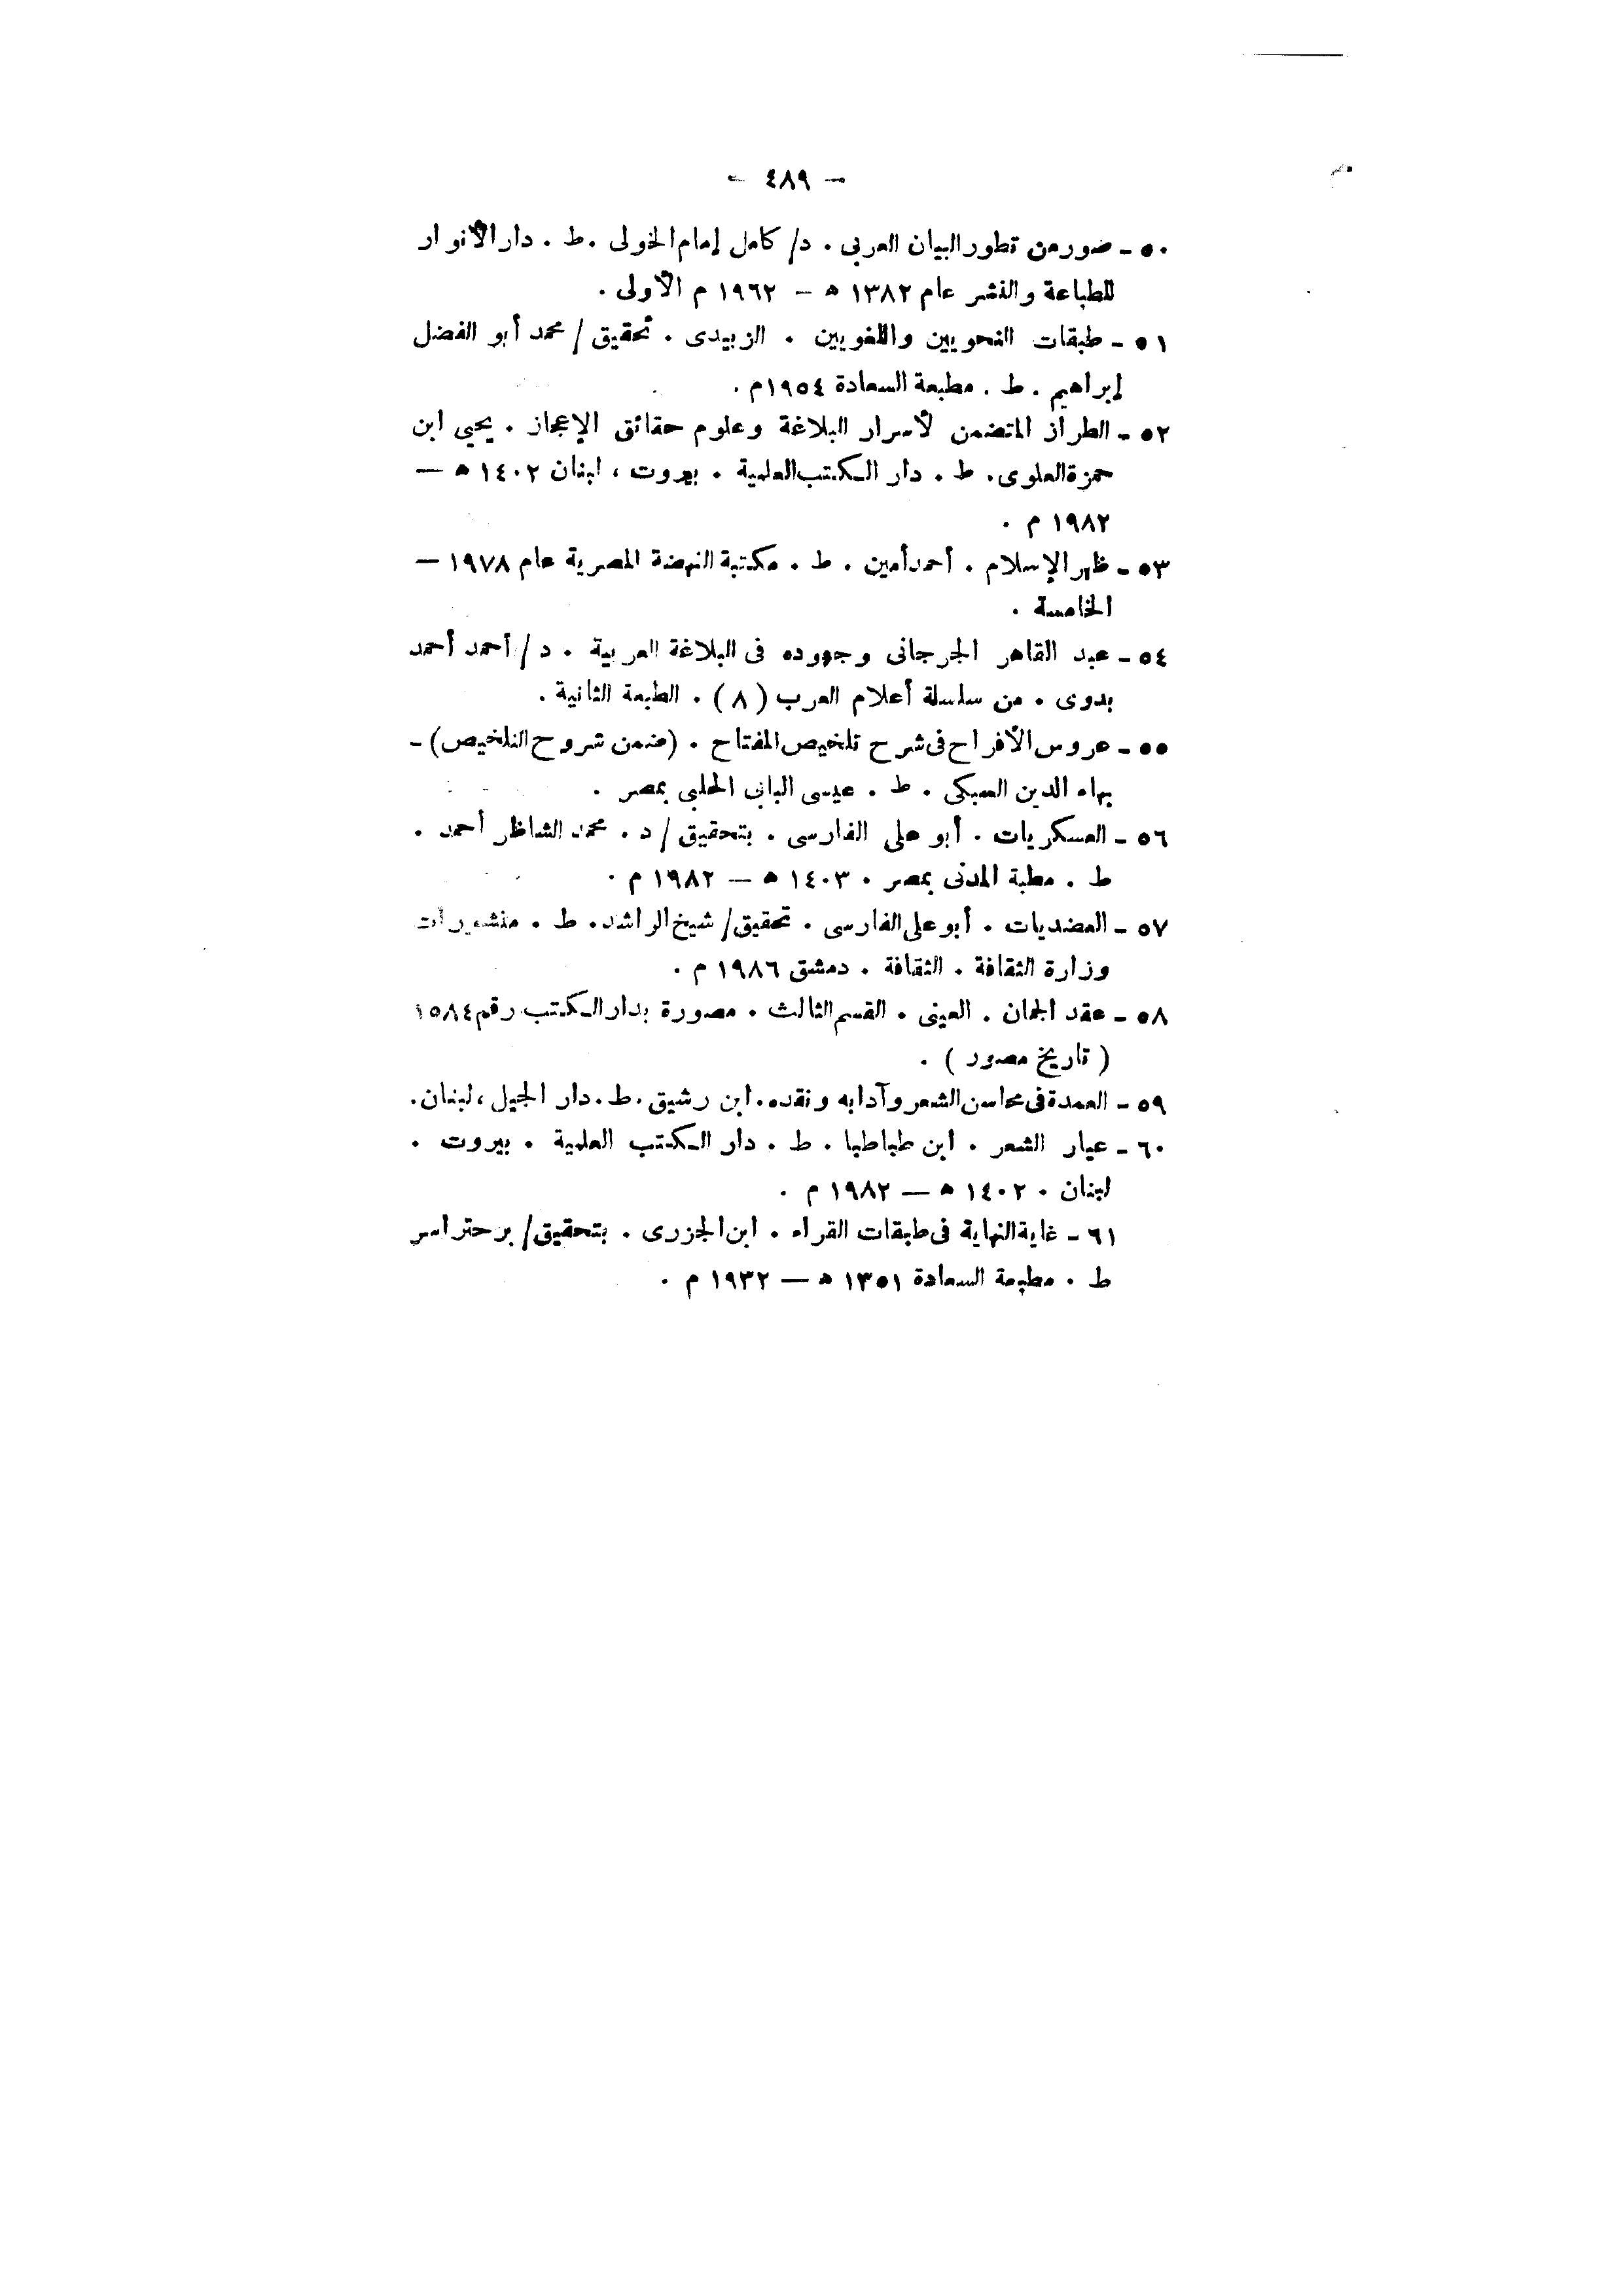 — ٤٨٩ —
٥٠ - صور من تطور البيان العربى . د/ كامل إمام الخولى . ط . دار الأنوار
للطباعة والنشر عام ١٣٨٢ ه — ١٩٦٢ م الأولى .
٥١ - طبقات النحويين واللغويين . الزبيدى . تحقيق / محمد أبو الفضل
إبراهيم . ط . مطبعة السعادة ١٩٥٤م .
٥٢ - الطراز المتضمن لأسرار البلاغة وعلوم حقائق الإعجاز . يحيى ابن
حمزة العلوى . ط . دار الكتب العلمية . بيروت ، لبنان ١٤٠٢ ه —
١٩٨٢ م .
٥٣ - ظهر الإسلام . أحمد أمين . ط . مكتبة النهضة المصرية عام ١٩٧٨ —
الخامسة .
٥٤ - عبد القاهر الجرجانى وجهوده فى البلاغة العربية . د / أحمد أحمد
بدوى . من سلسلة أعلام العرب ( ٨ ) . الطبعة الثانية .
٥٥ - عروس الأفراح فى شرح تلخيص المفتاح . (ضمن شروح التلخيص) -
بهاء الدين السبكى . ط . عيسى البابى الحلبى بمصر .
٥٦ - العسكريات . أبو على الفارسى . بتحقيق / د . محمد الشاظر أحمد .
ط . مطبة المدنى بمصر . ١٤٠٣ ه — ١٩٨٢ م .
٥٧ - العضديات . أبو على الفارسى . تحقيق / شيخ الراشد . ط . منشورات
وزارة الثقافة . الثقافة . دمشق ١٩٨٦ م .
٥٨ - عقد الجمان . العينى . القسم الثالث . مصورة بدار الكتب رقم ١٥٨٤
( تاريخ مصور ) .
٥٩ - العمدة فى محاسن الشعر وآدابه ونقده . ابن رشيق . ط . دار الجيل ، لبنان .
٦٠ - عيار الشعر . ابن طباطبا . ط . دار الكتب العلمية . بيروت .
لبنان . ١٤٠٢ ه — ١٩٨٢ م .
٦١ - غاية النهاية فى طبقات القراء . ابن الجزرى . بتحقيق / برحتراسر
ط . مطبعة السعادة ١٣٥١ ه — ١٩٣٢ م .